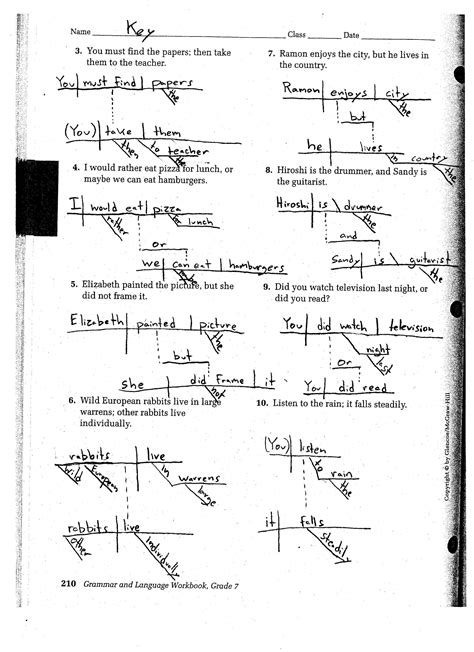 Name Key Class Date
3. You must find the papers; then take
them to the teacher.
You must find papers
the
(You) take them
then to teacher
the
4. I would rather eat pizza for lunch, or
maybe we can eat hamburgers.
I would eat pizza
rather for lunch
or
we can eat hamburgers
5. Elizabeth painted the picture, but she
did not frame it.
Elizabeth painted picture
the
but
she did frame it
not
6. Wild European rabbits live in large
warrens; other rabbits live
individually.
rabbits live
Wild European in warrens
large
rabbits live
other individually
210 Grammar and Language Workbook, Grade 7
7. Ramon enjoys the city, but he lives in
the country.
Ramon enjoys city
the
but
he lives
in country
the
8. Hiroshi is the drummer, and Sandy is
the guitarist.
Hiroshi is drummer
the
and
Sandy is guitarist
the
9. Did you watch television last night, or
did you read?
You did watch television
night
last
or
You did read
10. Listen to the rain; it falls steadily.
(You) listen
to rain
the
it falls
steadily
Copyright © by Glencoe/McGraw-Hill